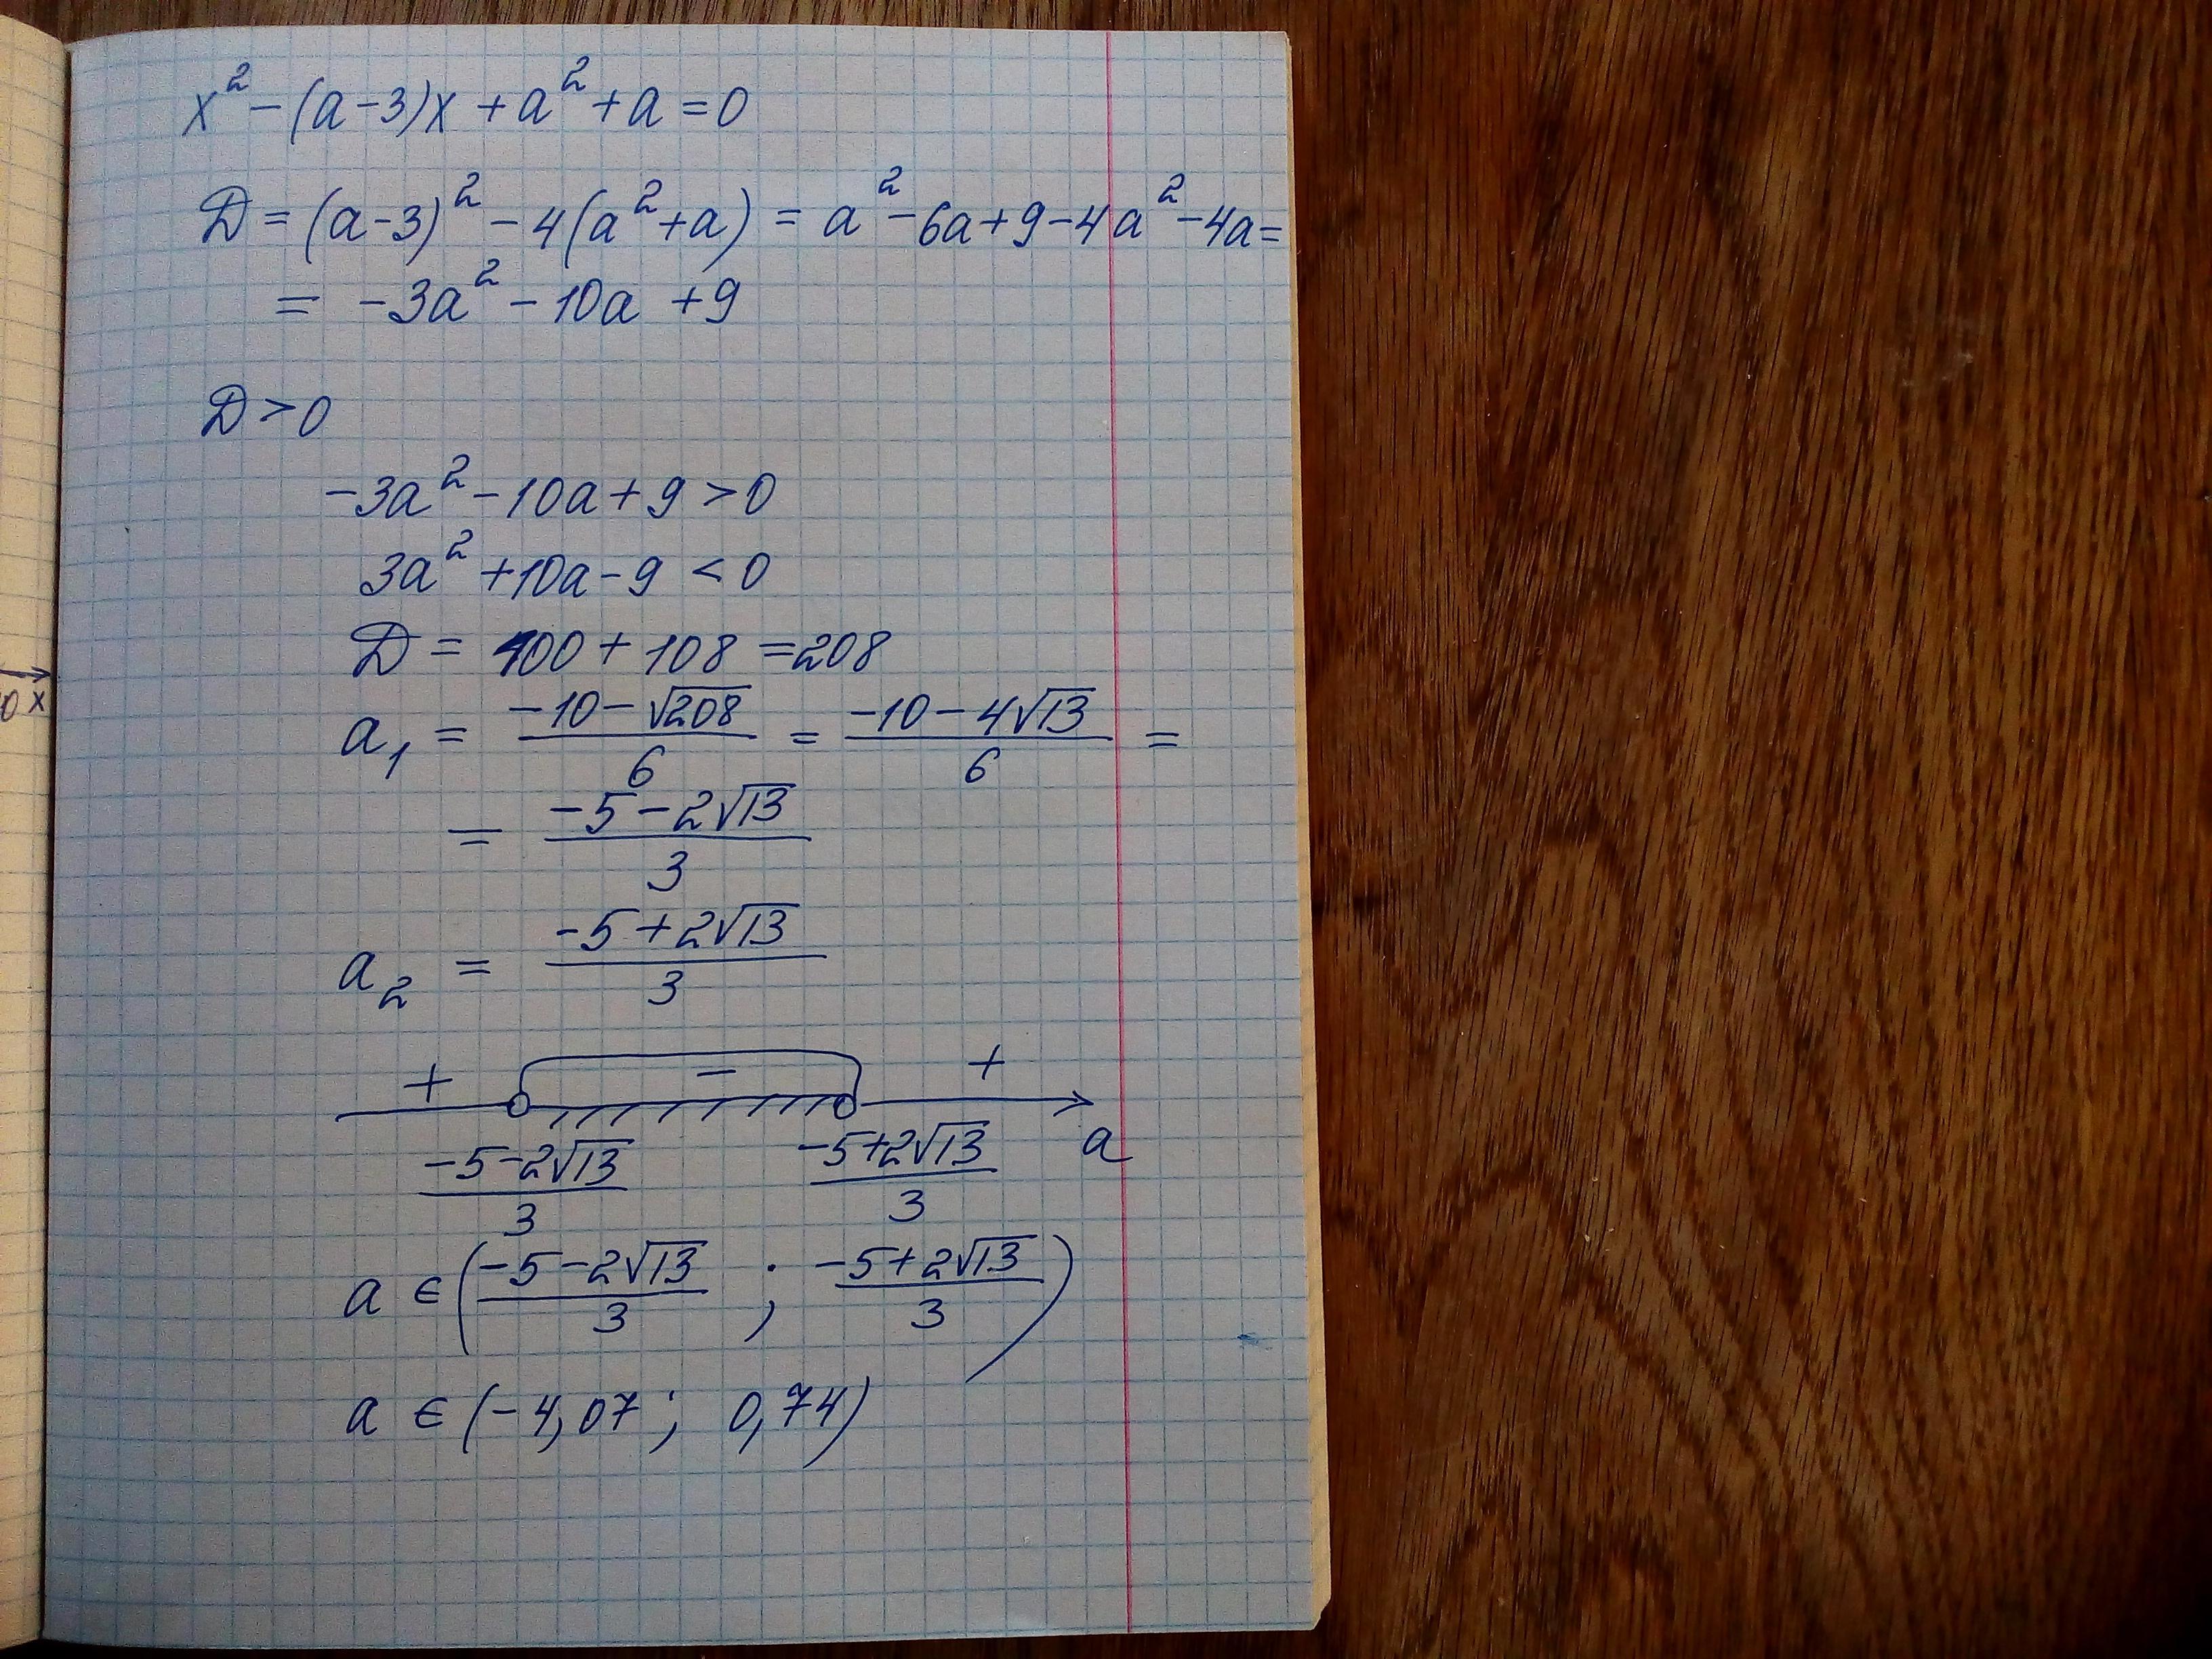 x² - (a-3)x + a² + a = 0
D = (a-3)² - 4(a²+a) = a² - 6a + 9 - 4a² - 4a =
= -3a² - 10a + 9
D > 0
-3a² - 10a + 9 > 0
3a² + 10a - 9 < 0
D = 100 + 108 = 208
a₁ = (-10 - √208)/6 = (-10 - 4√13)/6 =
= (-5 - 2√13)/3
a₂ = (-5 + 2√13)/3
+ - +
(-5 - 2√13)/3 (-5 + 2√13)/3 a
a ∈ ((-5 - 2√13)/3 ; (-5 + 2√13)/3)
a ∈ (-4,07 ; 0,74)
0 x